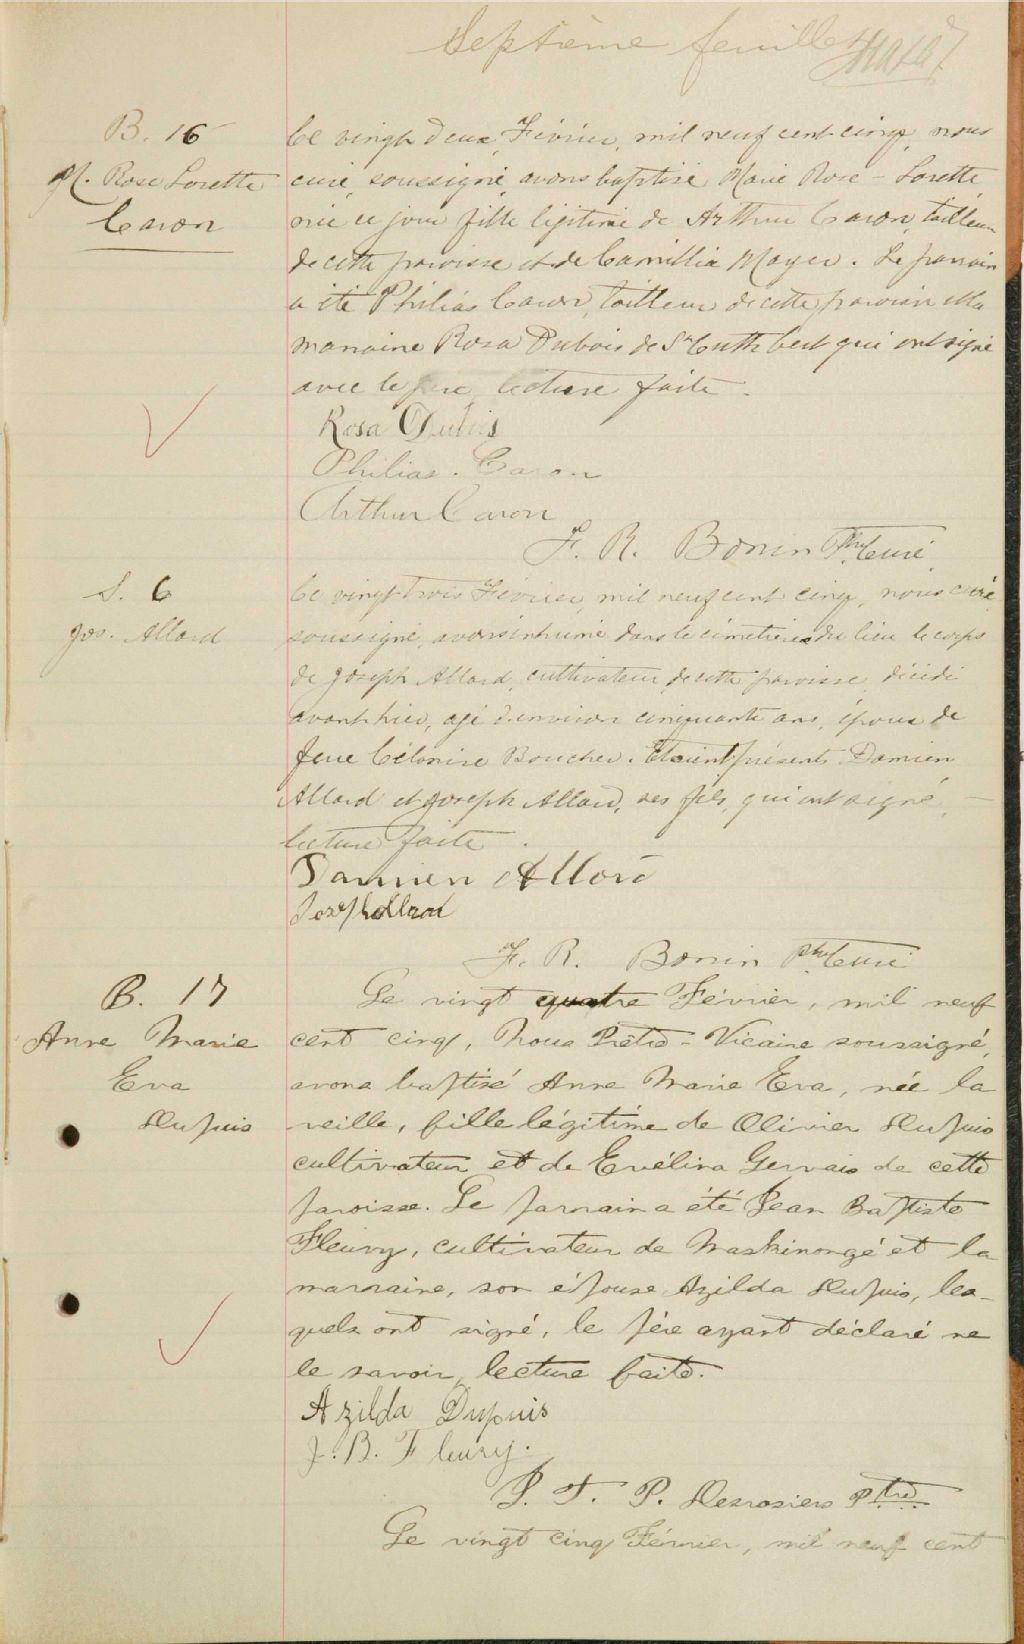 Septième feuillet
B. 16
M. Rose Lorette
Caron
Ce vingt deux Février, mil neuf cent cinq, nous
curé soussigné avons baptisé Marie Rose - Lorette
née ce jour fille légitime de Arthur Caron, tailleur
de cette paroisse et de Camillia Mayer. Le parrain
a été Philias Caron, tailleur de cette paroisse et la
marraine Rosa Dubois de St Cuthbert qui ont signé
avec le père lecture faite.
Rosa Dubois
Philias. Caron
Arthur Caron
F. R. Bonin Ptre Curé
S. 6
Jos. Allard
Ce vingt trois Février, mil neuf cent cinq, nous curé
soussigné, avons inhumé dans le cimetière du lieu le corps
de Joseph Allard, cultivateur, de cette paroisse, décédé
avant hier, agé d'environ cinquante ans, époux de
feue Célonise Boucher. Etaient présents Damien
Allard et Joseph Allard, ses fils, qui ont signé,
lecture faite.
Damien Allard
Joseph Allard
F. R. Bonin Ptre Curé
B. 17
Anne Marie
Eva
Dupuis
Le vingt quatre Février, mil neuf
cent cinq, Nous Prêtre - Vicaire soussigné,
avons baptisé Anne Marie Eva, née la
veille, fille légitime de Olivier Dupuis
cultivateur et de Evélina Gervais de cette
paroisse. Le parrain a été Jean Baptiste
Fleury, cultivateur de Maskinongé et la
marraine, son épouse Azilda Dupuis, les-
quels ont signé, le père ayant déclaré ne
le savoir, lecture faite.
Azilda Dupuis
J. B. Fleury.
P. T. P. Desrosiers Ptre
Le vingt cinq Février, mil neuf cent